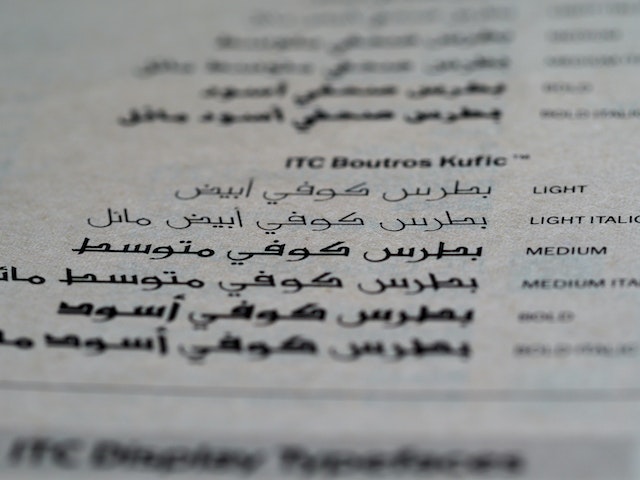 MEDIUM
بطرس صحفي متوسط
بطرس صحفي متوسط مائل MEDIUM ITA
بطرس صحفي أسود BOLD
بطرس صحفي أسود مائل BOLD ITALIC
ITC Boutros Kufic™
بطرس كوفي أبيض LIGHT
بطرس كوفي أبيض مائل LIGHT ITALIC
بطرس كوفي متوسط MEDIUM
بطرس كوفي متوسط مائ MEDIUM ITA
بطرس كوفي أسود BOLD
بطرس كوفي أسود ما BOLD ITALIC
ITC Display Typefaces